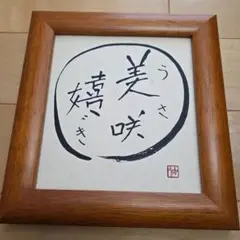 美咲
うさ
嬉
ぎ